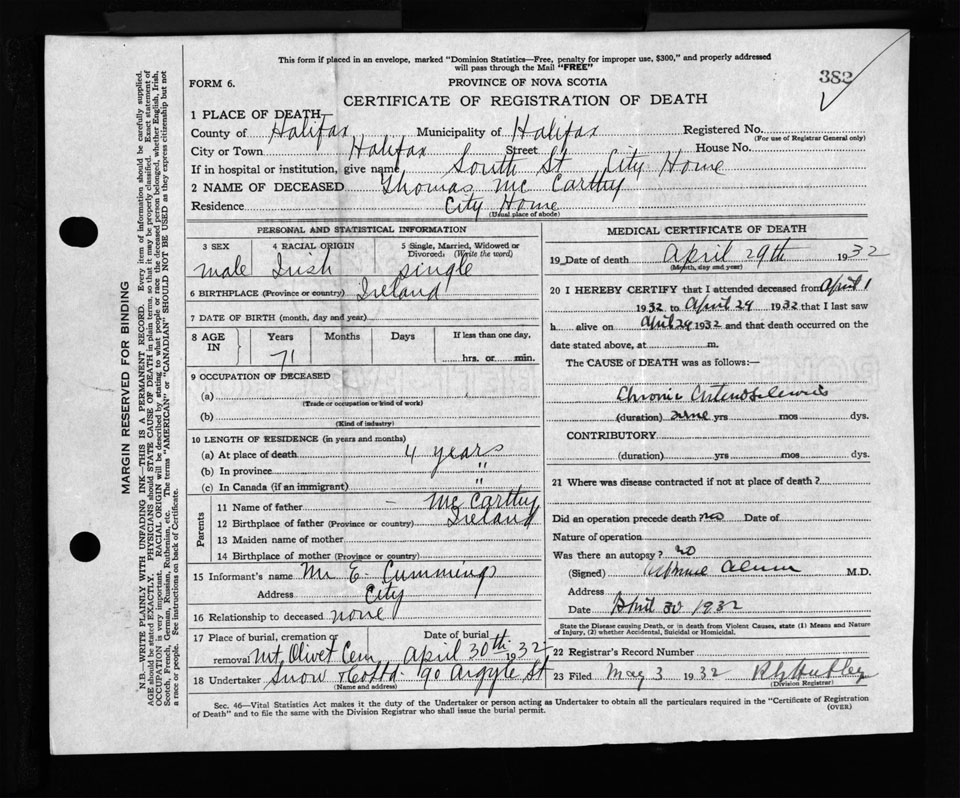 This form if placed in an envelope, marked "Dominion Statistics—Free, penalty for improper use, $300," and properly addressed
will pass through the Mail "FREE"
FORM 6.
PROVINCE OF NOVA SCOTIA
382
CERTIFICATE OF REGISTRATION OF DEATH
1 PLACE OF DEATH
County of Halifax Municipality of Halifax Registered No.
(For use of Registrar General only)
City or Town Halifax Street House No.
If in hospital or institution, give name South St City Home
2 NAME OF DECEASED Thomas Mc Carthy
Residence City Home
(Usual place of abode)
PERSONAL AND STATISTICAL INFORMATION
3 SEX 4 RACIAL ORIGIN 5 Single, Married, Widowed or
Divorced: (Write the word)
male Irish single
6 BIRTHPLACE (Province or country) Ireland
7 DATE OF BIRTH (month, day and year)
8 AGE IN Years Months Days If less than one day,
71 hrs. or min.
9 OCCUPATION OF DECEASED
(a)
(Trade or occupation or kind of work)
(b)
(Kind of industry)
10 LENGTH OF RESIDENCE (in years and months)
(a) At place of death 4 years
(b) In province "
(c) In Canada (if an immigrant) "
Parents
11 Name of father — Mc Carthy
12 Birthplace of father (Province or country) Ireland
13 Maiden name of mother
14 Birthplace of mother (Province or country)
15 Informant's name Mr E. Cummings
Address City
16 Relationship to deceased none
17 Place of burial, cremation or Date of burial
removal Mt Olivet Cem April 30th 1932
18 Undertaker Snow & Co Ltd. 90 Argyle St
(Name and address)
MEDICAL CERTIFICATE OF DEATH
19 Date of death April 29th 1932
(Month, day and year)
20 I HEREBY CERTIFY that I attended deceased from April 1
1932 to April 29 1932 that I last saw
h alive on April 29 1932 and that death occurred on the
date stated above, at m.
The CAUSE of DEATH was as follows:—
Chronic
(duration) yrs mos dys.
CONTRIBUTORY
(duration) yrs mos dys.
21 Where was disease contracted if not at place of death?
Did an operation precede death? no Date of
Nature of operation
Was there an autopsy? no
(Signed) M.D.
Address
Date April 30 1932
State the Disease causing Death, or in death from Violent Causes, state (1) Means and Nature
of Injury, (2) whether Accidental, Suicidal or Homicidal.
22 Registrar's Record Number
23 Filed May 3 1932
(Division Registrar)
Sec. 46—Vital Statistics Act makes it the duty of the Undertaker or person acting as Undertaker to obtain all the particulars required in the "Certificate of Registration
of Death" and to file the same with the Division Registrar who shall issue the burial permit.
(OVER)
MARGIN RESERVED FOR BINDING
N.B.—WRITE PLAINLY WITH UNFADING INK—THIS IS A PERMANENT RECORD. Every item of information should be carefully supplied.
AGE should be stated EXACTLY. PHYSICIANS should STATE CAUSE OF DEATH in plain terms, so that it may be properly classified. Exact statement of
OCCUPATION is very important. RACIAL ORIGIN will be described by stating to what people or race the deceased person belonged, whether English, Irish,
Scotch, French, German, Russian, Ruthenian, etc. The terms "AMERICAN" or "CANADIAN" SHOULD NOT BE USED as they express citizenship but not
a race or people. See instructions on back of Certificate.